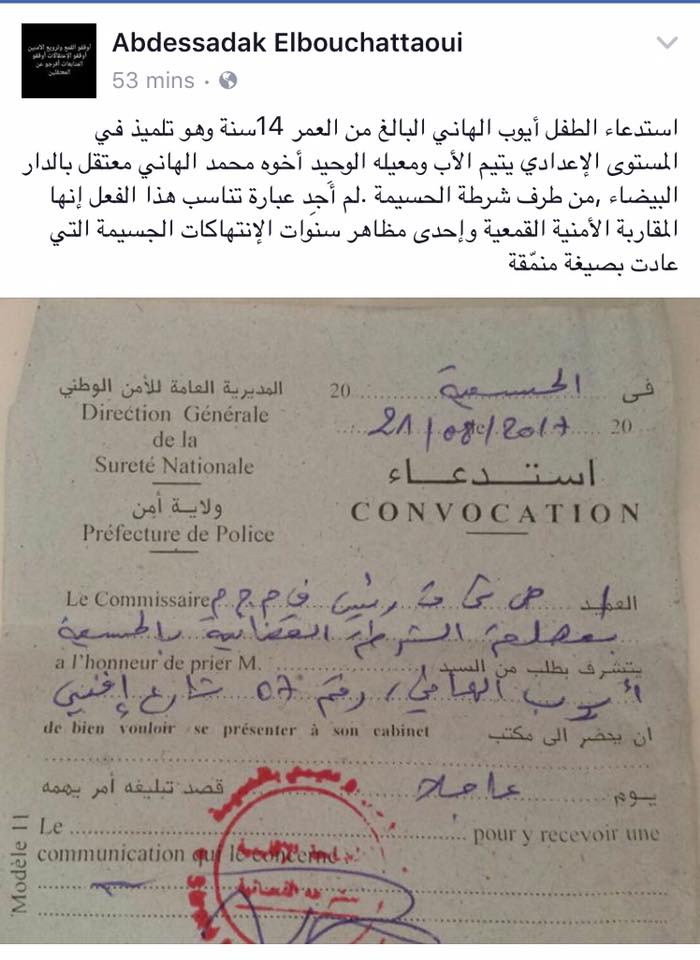 أوقفو القمع وترويع الآمنين
أوقفو الإعتقالات أوقفو
المتابعات أفرجو عن
المعتقلين
Abdessadak Elbouchattaoui
53 mins ·
استدعاء الطفل أيوب الهاني البالغ من العمر 14سنة وهو تلميذ في
المستوى الإعدادي يتيم الأب ومعيله الوحيد أخوه محمد الهاني معتقل بالدار
البيضاء ,من طرف شرطة الحسيمة .لم أَجِد عبارة تناسب هذا الفعل إنها
المقاربة الأمنية القمعية وإحدى مظاهر سنوات الإنتهاكات الجسيمة التي
عادت بصيغة منمّقة
المديرية العامة للأمن الوطني
Direction Générale
de la
Sureté Nationale
ولاية أمن
Préfecture de Police
في الحسيمة 20
21/08/2017 20
استدعاء
CONVOCATION
Le Commissaire العميد رئيس ف م ج م
بمصلحة الشرطة القضائية بالحسيمة
a l'honneur de prier M. يتشرف بطلب من السيد
أيوب الهاني، رقم 07 شارع إفني
de bien vouloir se présenter à son cabinet ان يحضر الى مكتب
يوم عاجلا قصد تبليغه أمر يهمه
Le pour y recevoir une
communication qui le concerne
Modèle 11